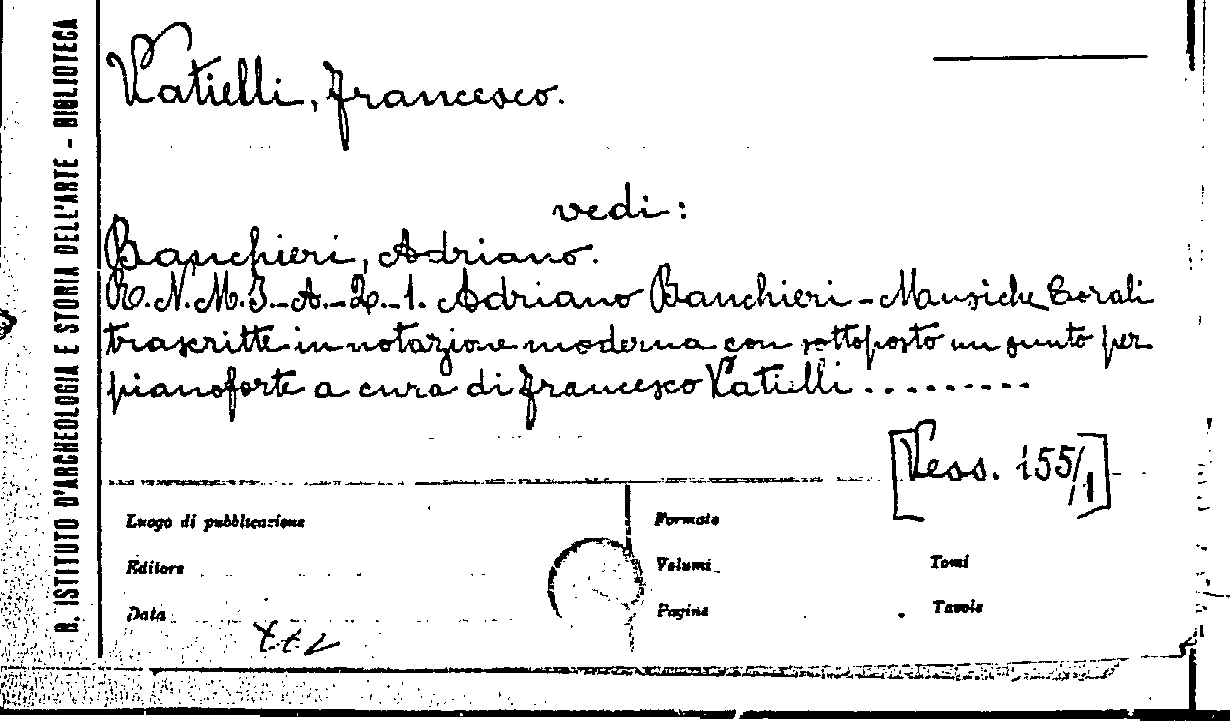 R. ISTITUTO D'ARCHEOLOGIA E STORIA DELL'ARTE - BIBLIOTECA
Vatielli, Francesco.
vedi:
Banchieri, Adriano.
R.N.M.I-A-2-1. Adriano Banchieri - Musiche Corali
trascritte in notazione moderna con sottoposto un sunto per
pianoforte a cura di Francesco Vatielli .........
[Vess. 155/1]
Luogo di pubblicazione
Formato
Editore
Volumi
Tomi
Data
Pagine
Tavole